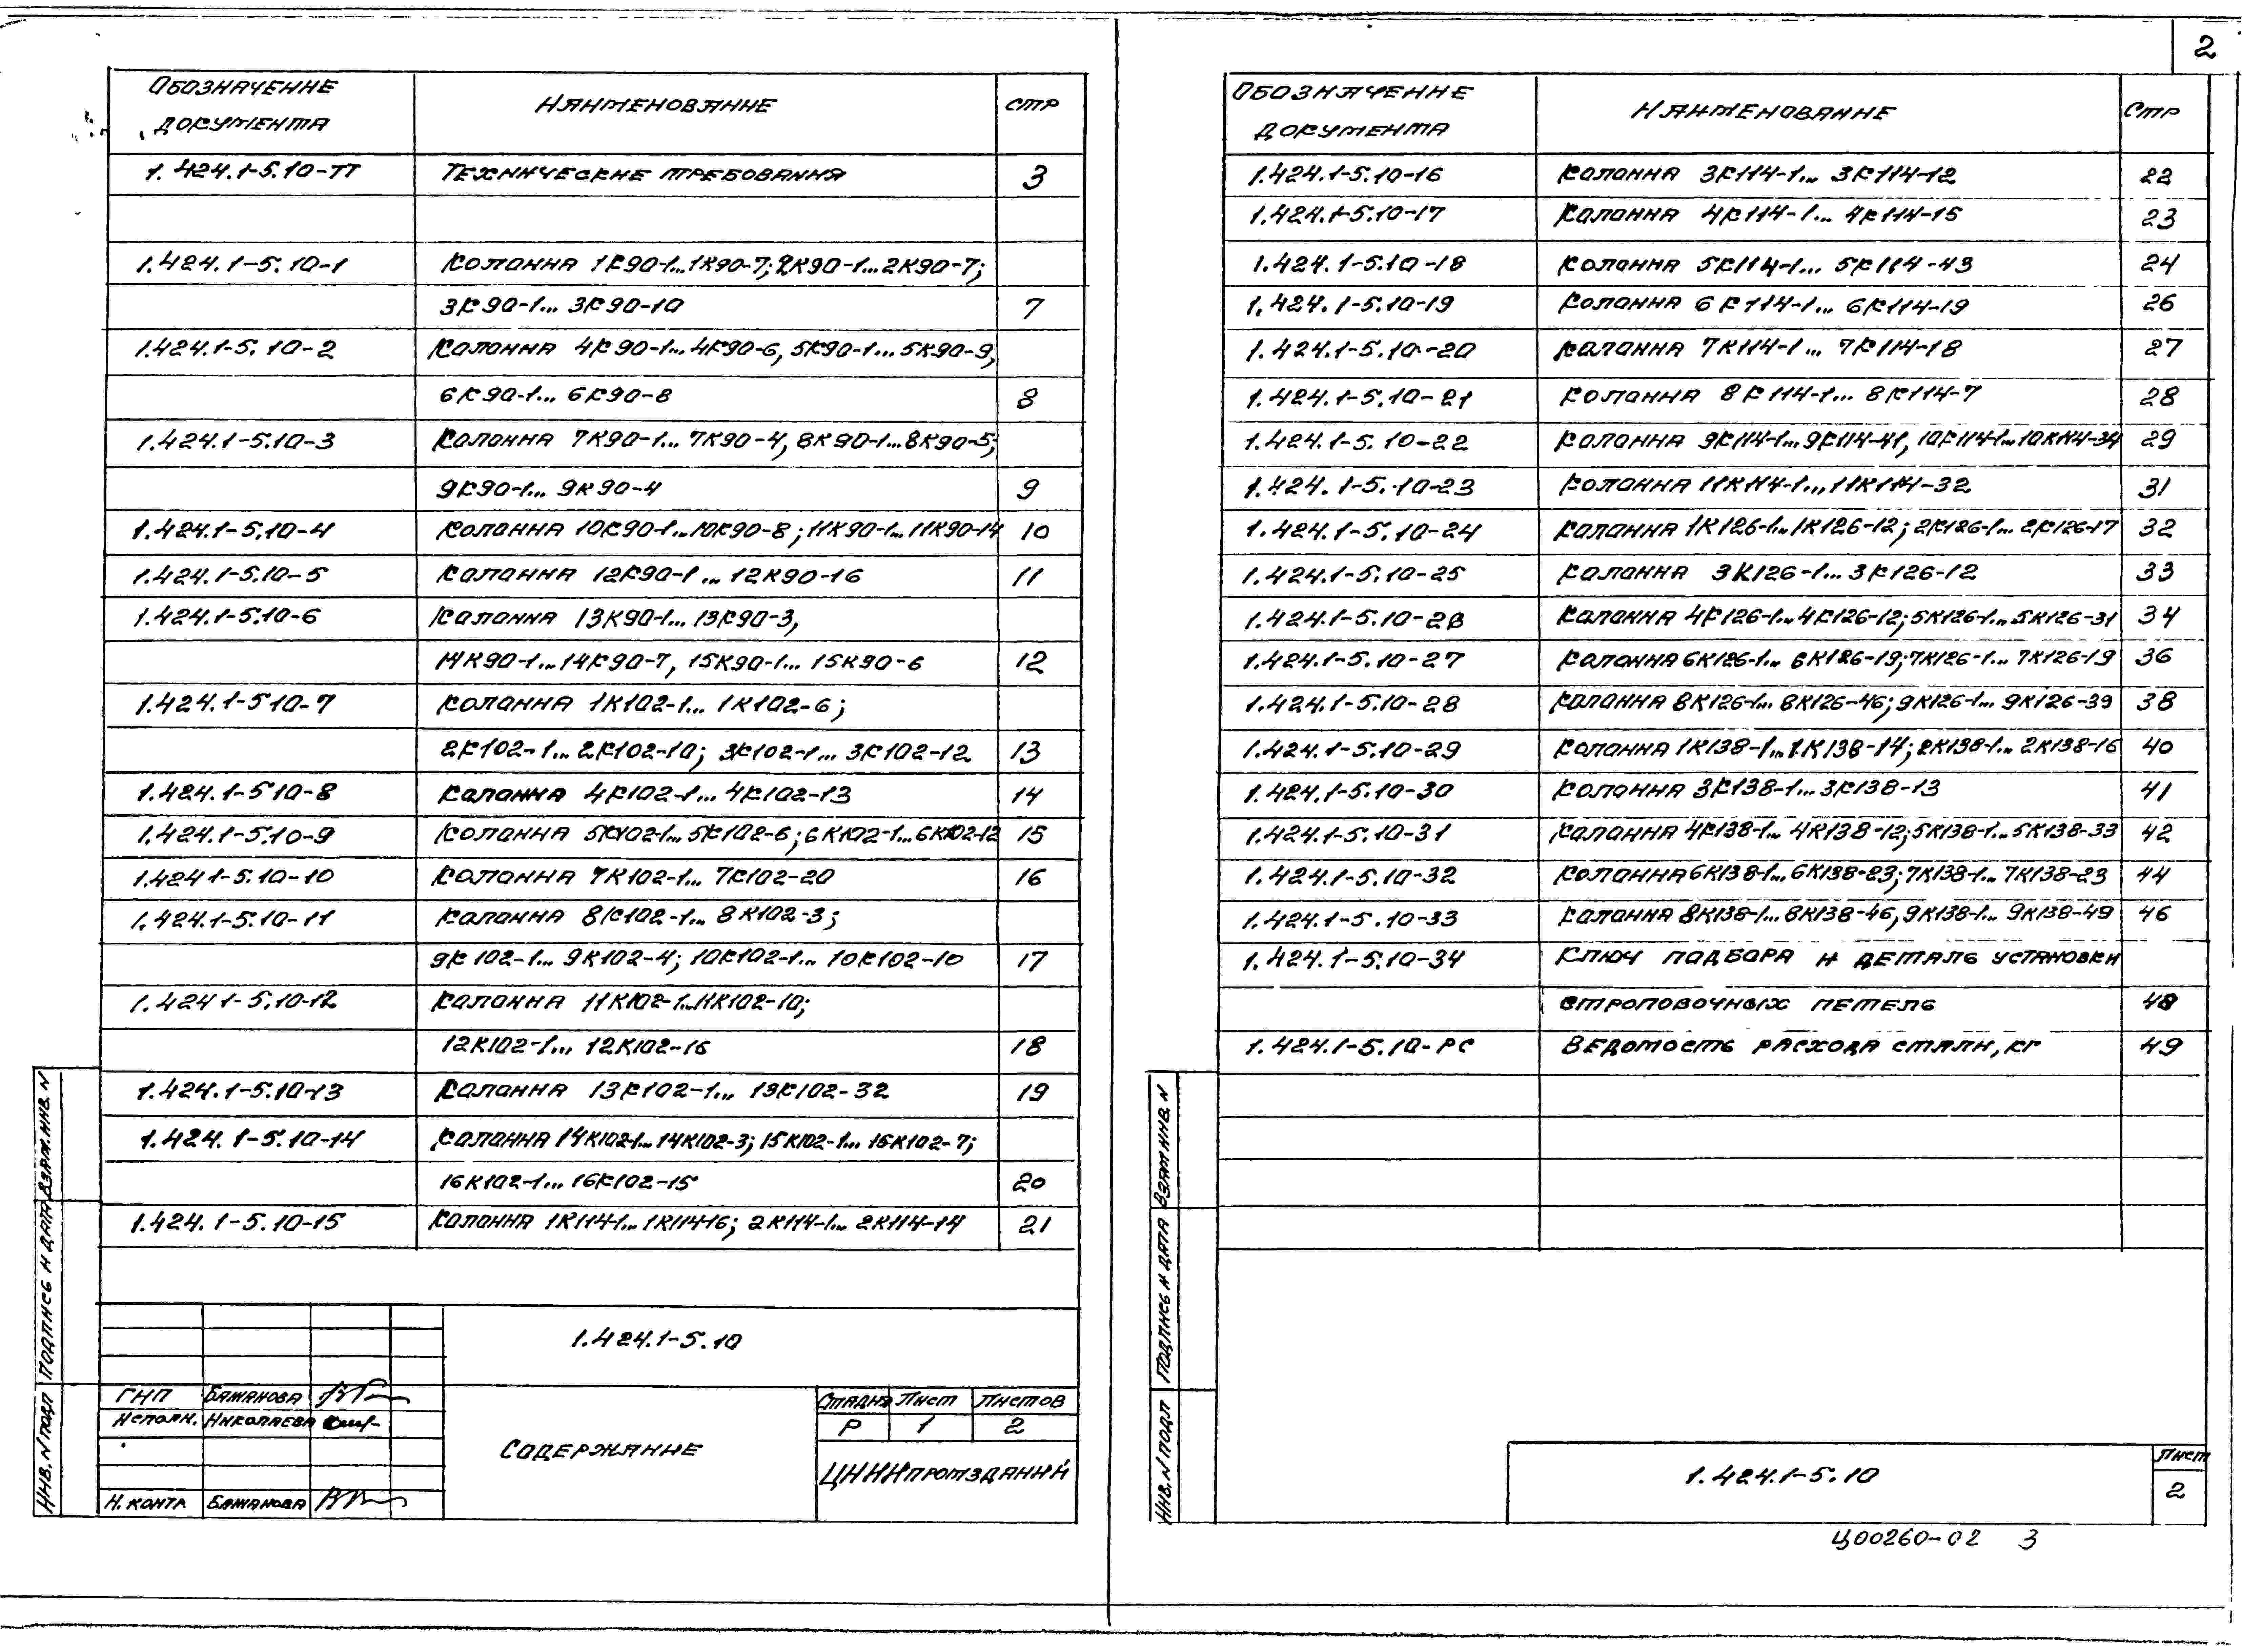 2
Обозначение документа Наименование стр
1.424.1-5.10-ТТ Технические требования 3
1.424.1-5.10-1 Колонна 1К90-1...1К90-7; 2К90-1...2К90-7;
3К90-1... 3К90-10 7
1.424.1-5.10-2 Колонна 4К90-1...4К90-6, 5К90-1...5К90-9,
6К90-1... 6К90-8 8
1.424.1-5.10-3 Колонна 7К90-1... 7К90-4, 8К90-1...8К90-5;
9К90-1... 9К90-4 9
1.424.1-5.10-4 Колонна 10К90-1...10К90-8; 11К90-1... 11К90-14 10
1.424.1-5.10-5 Колонна 12К90-1... 12К90-16 11
1.424.1-5.10-6 Колонна 13К90-1... 13К90-3,
14К90-1...14К90-7, 15К90-1... 15К90-6 12
1.424.1-5 10-7 Колонна 1К102-1... 1К102-6;
2К102-1... 2К102-10; 3К102-1... 3К102-12 13
1.424.1-5 10-8 Колонна 4К102-1... 4К102-13 14
1.424.1-5.10-9 Колонна 5К102-1... 5К102-6; 6К102-1...6К102-12 15
1.424 1-5.10-10 Колонна 7К102-1... 7К102-20 16
1.424.1-5.10-11 Колонна 8К102-1... 8К102-3;
9К102-1... 9К102-4; 10К102-1... 10К102-10 17
1.424 1-5.10-12 Колонна 11К102-1...11К102-10;
12К102-1... 12К102-16 18
1.424.1-5.10-13 Колонна 13К102-1... 13К102-32 19
1.424.1-5.10-14 Колонна 14К102-1... 14К102-3; 15К102-1... 15К102-7;
16К102-1... 16К102-15 20
1.424.1-5.10-15 Колонна 1К114-1... 1К114-16; 2К114-1... 2К114-14 21
1.424.1-5.10
ГИП Бажанова
Исполн. Николаева
Н.контр Бажанова
Содержание
Стадия Лист Листов
Р 1 2
ЦНИИпромзданий
Инв. N подл Подпись и дата Взам.инв. N
Обозначение документа Наименование Стр
1.424.1-5.10-16 Колонна 3К114-1... 3К114-12 22
1.424.1-5.10-17 Колонна 4К114-1... 4К114-15 23
1.424.1-5.10-18 Колонна 5К114-1... 5К114-43 24
1.424.1-5.10-19 Колонна 6К114-1... 6К114-19 26
1.424.1-5.10-20 Колонна 7К114-1... 7К114-18 27
1.424.1-5.10-21 Колонна 8К114-1... 8К114-7 28
1.424.1-5.10-22 Колонна 9К114-1...9К114-41, 10К114-1...10К114-34 29
1.424.1-5.10-23 Колонна 11К114-1...11К114-32 31
1.424.1-5.10-24 Колонна 1К126-1...1К126-12; 2К126-1... 2К126-17 32
1.424.1-5.10-25 Колонна 3К126-1... 3К126-12 33
1.424.1-5.10-26 Колонна 4К126-1...4К126-12; 5К126-1...5К126-31 34
1.424.1-5.10-27 Колонна 6К126-1... 6К126-19; 7К126-1... 7К126-19 36
1.424.1-5.10-28 Колонна 8К126-1... 8К126-46; 9К126-1... 9К126-39 38
1.424.1-5.10-29 Колонна 1К138-1...1К138-14; 2К138-1... 2К138-16 40
1.424.1-5.10-30 Колонна 3К138-1...3К138-13 41
1.424.1-5.10-31 Колонна 4К138-1... 4К138-12; 5К138-1... 5К138-33 42
1.424.1-5.10-32 Колонна 6К138-1... 6К138-23; 7К138-1... 7К138-23 44
1.424.1-5.10-33 Колонна 8К138-1... 8К138-46, 9К138-1... 9К138-49 46
1.424.1-5.10-34 Ключ подбора и деталь установки
строповочных петель 48
1.424.1-5.10-РС Ведомость расхода стали, кг 49
Инв. N подл Подпись и дата Взам инв. N
1.424.1-5.10
Лист
2
Ц00260-02 3